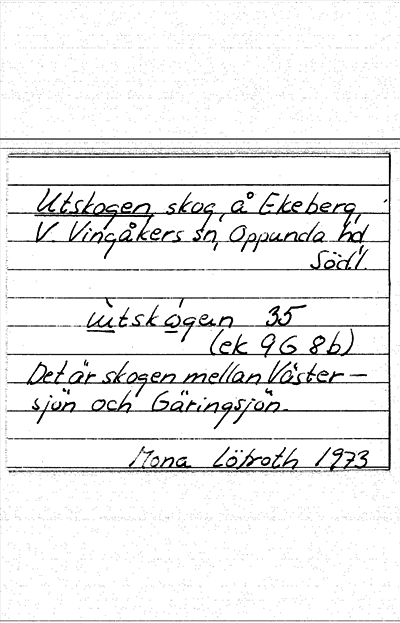 Utskogen, skog, å Ekeberg,
V. Vingåkers sn, Oppunda hd,
Södl.
35
(ek 9G 8b)
Det är skogen mellan Väster-
sjön och Gäringsjön.
Mona Löfroth 1973